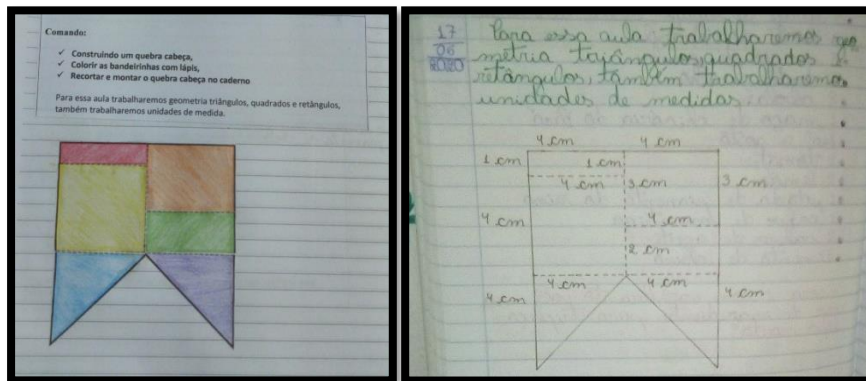 Comando:
✓ Construindo um quebra cabeça,
✓ Colorir as bandeirinhas com lápis,
✓ Recortar e montar o quebra cabeça no caderno
Para essa aula trabalharemos geometria triângulos, quadrados e retângulos,
também trabalharemos unidades de medida.
17 Para essa aula trabalharemos geo
06 metria triângulos, quadrados e
2020 retângulos, também trabalharemos
unidades de medidas.
4 cm 4 cm
1 cm 1 cm
4 cm 3 cm 3 cm
4 cm 4 cm
2 cm
4 cm 4 cm
4 cm 4 cm